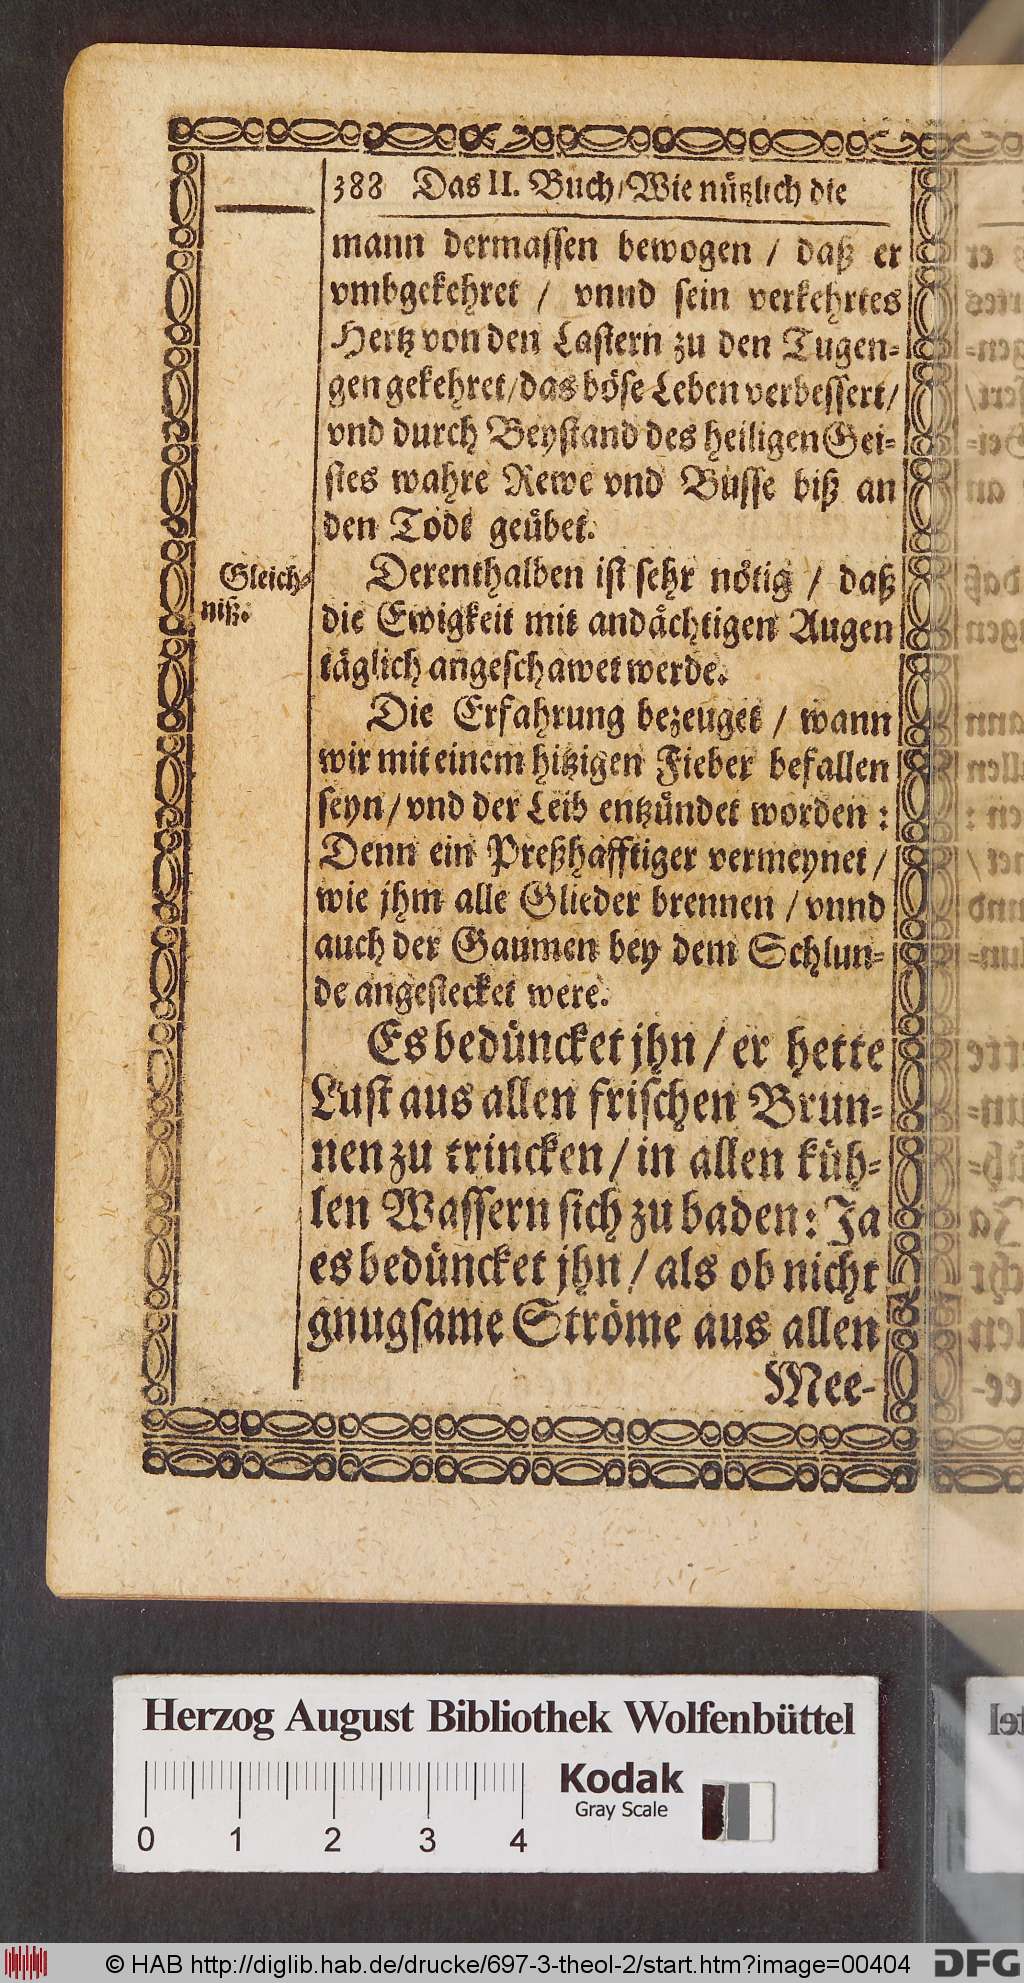 388 Das II. Buch/Wie nützlich die
mann dermassen bewogen / daß er
vmbgekehret / vnnd sein verkehrtes
Hertz von den Lastern zu den Tugen-
gen gekehret/das böse Leben verbessert/
vnd durch Beystand des heiligen Gei-
stes wahre Rewe vnd Busse biß an
den Todt geübet.
Gleich-
niß.
Derenthalben ist sehr nötig / daß
die Ewigkeit mit andächtigen Augen
täglich angeschawet werde.
Die Erfahrung bezeuget / wann
wir mit einem hitzigen Fieber befallen
seyn/vnd der Leib entzündet worden:
Denn ein Preßhafftiger vermeynet/
wie jhm alle Glieder brennen / vnnd
auch der Gaumen bey dem Schlun-
de angestecket were.
Es bedüncket jhn / er hette
Lust aus allen frischen Brun-
nen zu trincken / in allen küh-
len Wassern sich zu baden: Ja
es bedüncket jhn / als ob nicht
gnugsame Ströme aus allen
Mee-
Herzog August Bibliothek Wolfenbüttel
Kodak
Gray Scale
0 1 2 3 4
© HAB http://diglib.hab.de/drucke/697-3-theol-2/start.htm?image=00404
DFG